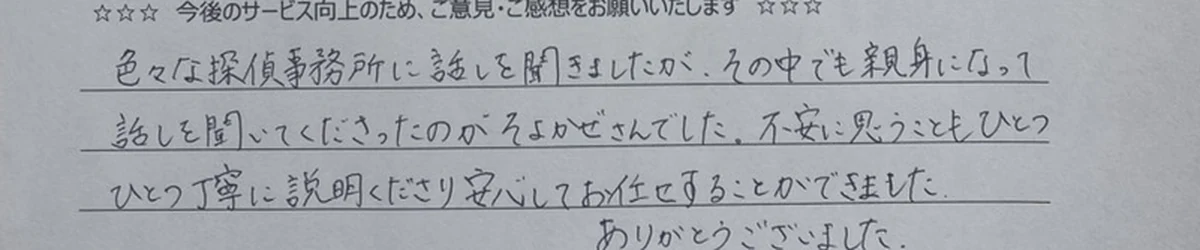 ☆☆☆ 今後のサービス向上のため、ご意見・ご感想をお願いいたします ☆☆☆
色々な探偵事務所に話しを聞きましたが、その中でも親身になって
話しを聞いてくださったのがそよかぜさんでした。不安に思うこともひとつ
ひとつ丁寧に説明くださり安心してお任せすることができました。
ありがとうございました。